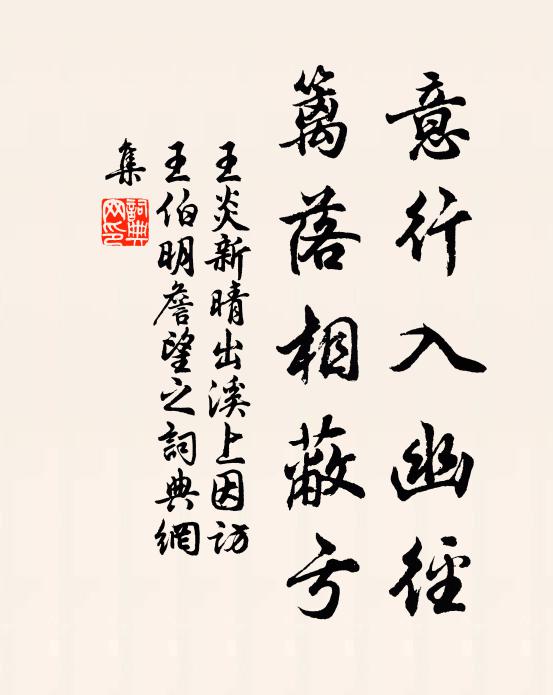 意行入幽徑
籬落相蔽亏
王炎新晴出溪上因訪
王伯明詹望之詞典網
集
詞典
网印